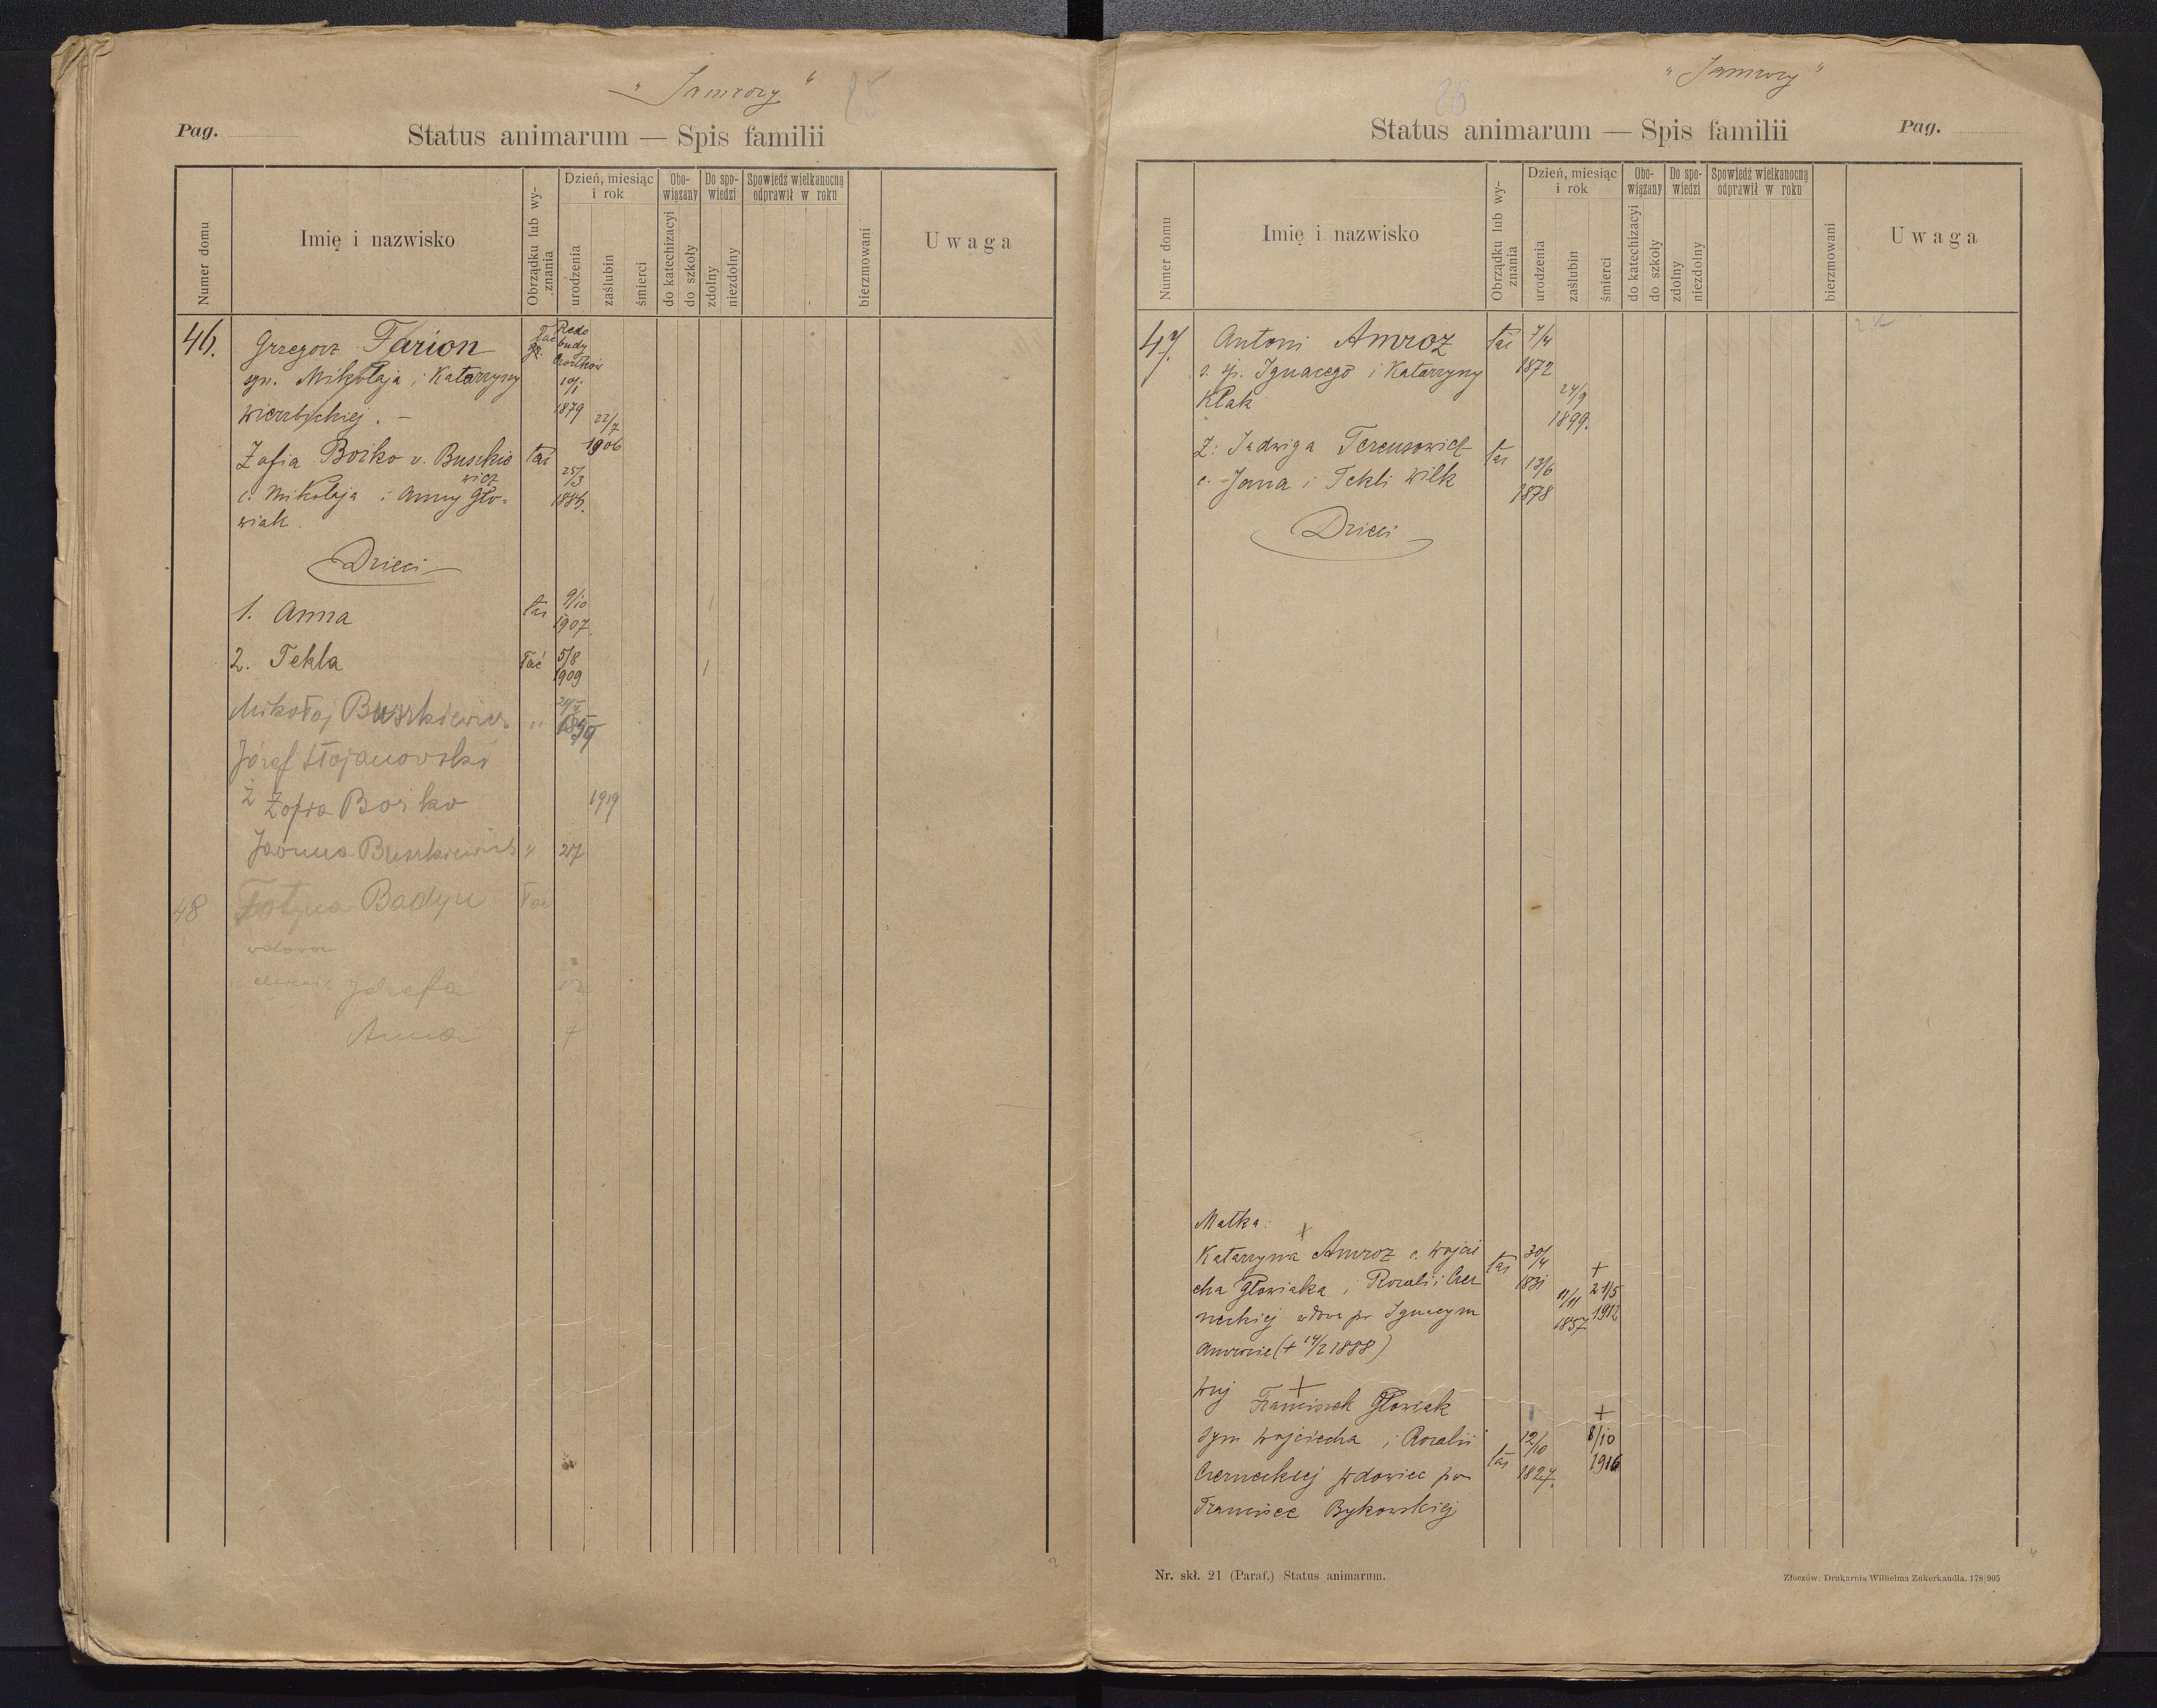 "Jamrozy" 25
Pag.
Status animarum — Spis familii
Numer domu
Imię i nazwisko
Obrządku lub wyznania
Dzień, miesiąc i rok
urodzenia
zaślubin
śmierci
Obowiązany
do katechizacyi
do szkoły
Do spowiedzi
zdolny
niezdolny
Spowiedź wielkanocną odprawił w roku
bierzmowani
Uwaga
46. Grzegorz Farion
syn. Mikołaja i Katarzyny 10/1
Wierzbickiej. — 1879 22/7
1906
Zofia Boiko v. Buszkiewicz łac 25/3
c. Mikołaja i Anny Gło- 1886.
wiak.
Dzieci
1. Anna łac 9/10
1907.
2. Tekla łać 5/8
1909
Mikołaj Buszkiewicz "
Józef Stojanowski
Ż Zofia Boiko 1919
Buszkiewicz " 27
48 Badyn łac
wdowa
Józefa 12
Anna 7
"Jamrozy"
26
Status animarum — Spis familii
Pag.
Numer domu
Imię i nazwisko
Obrządku lub wyznania
Dzień, miesiąc i rok
urodzenia
zaślubin
śmierci
Obowiązany
do katechizacyi
do szkoły
Do spowiedzi
zdolny
niezdolny
Spowiedź wielkanocną odprawił w roku
bierzmowani
Uwaga
47. Antoni Amroz łac 7/4
s. śp. Ignacego i Katarzyny 1872
Kłak 24/9
1899.
Ż: Jadwiga łac 13/6
c. Jana i Tekli Wilk 1878
Dzieci
Matka:
Katarzyna Amroz c. Wojcie łac 30/4 +
cha Głowiaka i Rozalii Czer 1831 11/11 21/5
neckiej wdowa po Ignacym 1857 1912
Amrozie (+ 14/2 1888)
Wuj Franciszek Głowiak +
syn Wojciecha i Rozalii łac 12/10 8/10
Czerneckiej wdowiec po 1827. 1916
Francisce Bykowskiej
Nr. skł. 21 (Paraf.) Status animarum.
Złoczów. Drukarnia Wilhelma Zukerkandla. 178|905